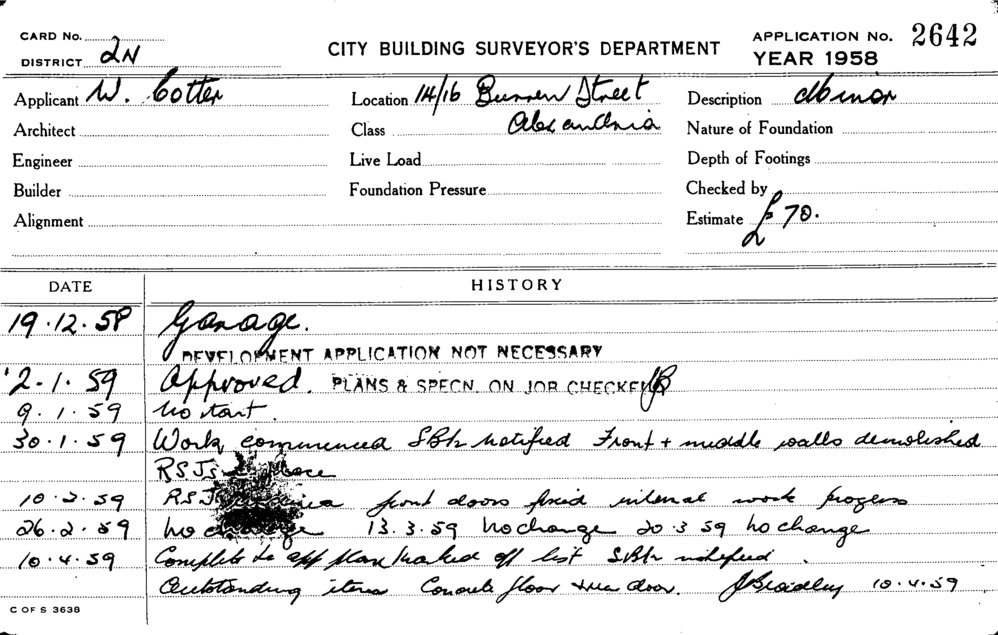 CARD No.
DISTRICT 2N
CITY BUILDING SURVEYOR'S DEPARTMENT
APPLICATION No. 2642
YEAR 1958
Applicant W. Cotter
Location 14/16 Burren Street
Description Minor
Architect
Class Alexandria
Nature of Foundation
Engineer
Live Load
Depth of Footings
Builder
Foundation Pressure
Checked by
Alignment
Estimate £70.
DATE HISTORY
19.12.58 Garage.
DEVELOPMENT APPLICATION NOT NECESSARY
2.1.59 Approved. PLANS & SPECN. ON JOB CHECKED JB
9.1.59 No start.
30.1.59 Work commenced notified Front + middle walls demolished
RSJs place
10.2.59 R.S.J front doors fixed internal work progress
26.2.59 No change 13.3.59 No change 20.3.59 No change
10.4.59 Complete to app plan marked off list notified
Outstanding items Concrete floor door. J Bradley 10.4.59
C OF S 3638